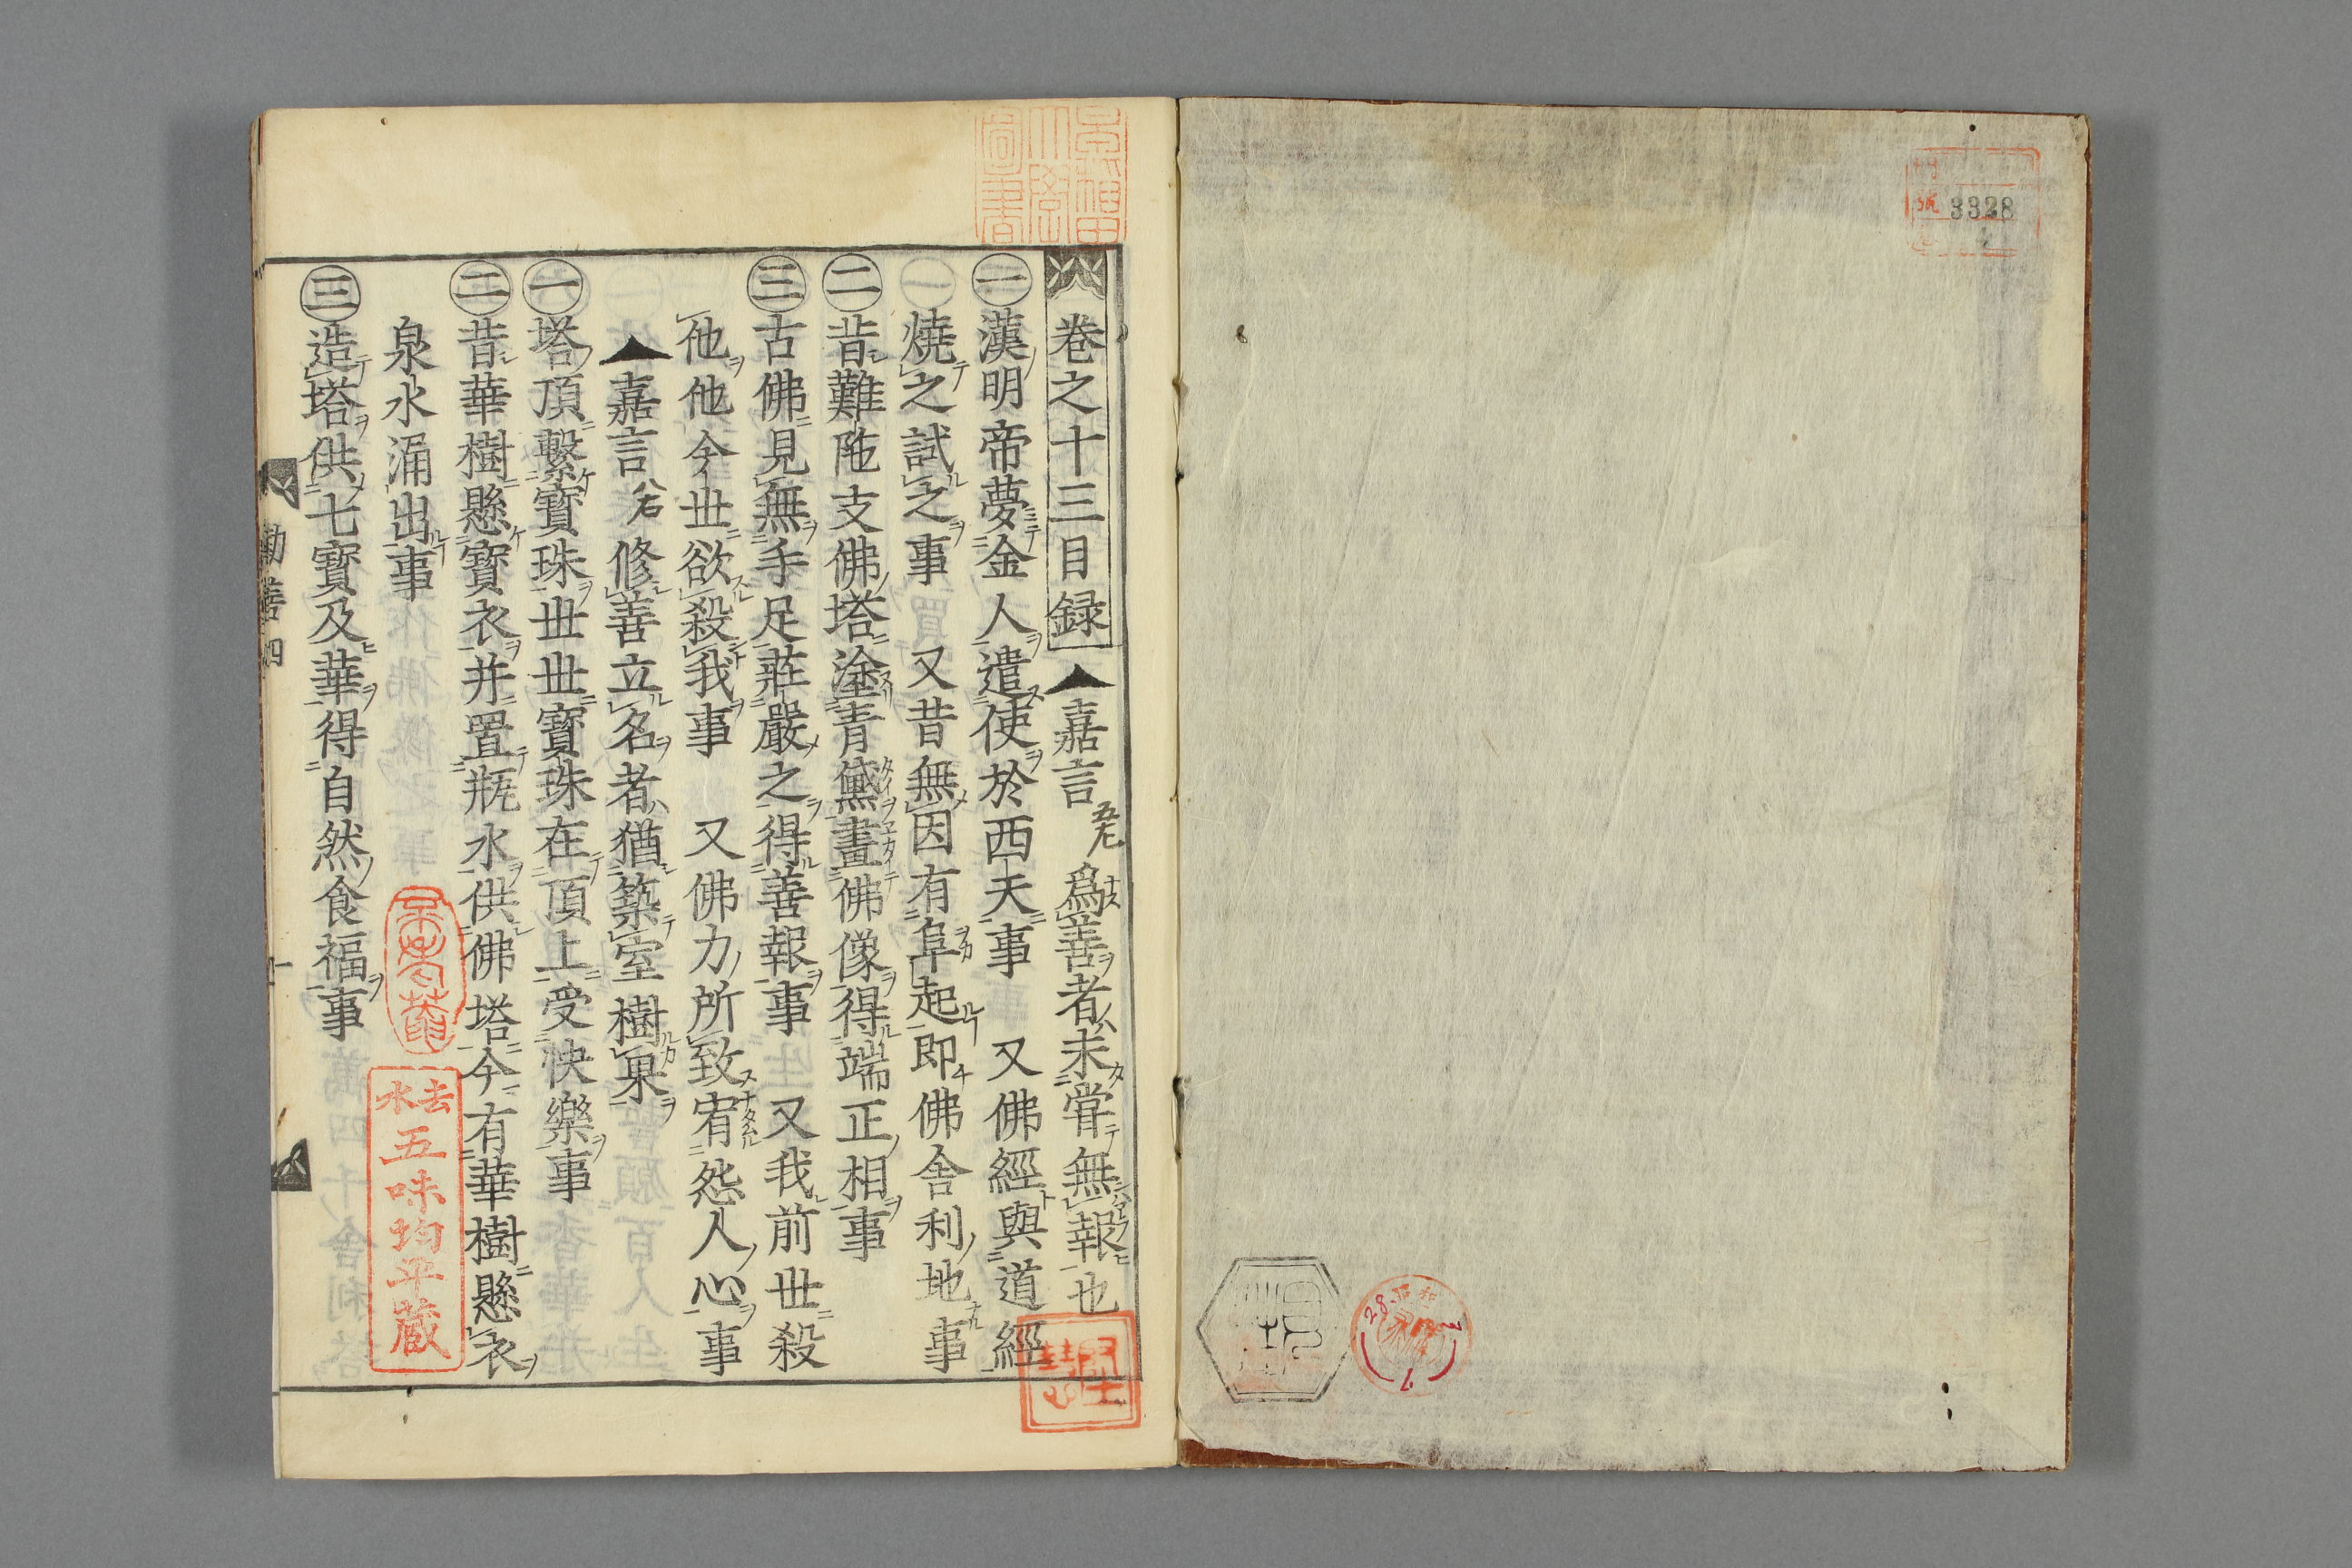 3328
卷之十三目録 嘉言 五左 爲善者未甞無報也
㊀漢明帝夢金人遣使於西天事 又佛經與道經
燒之試之事 又昔無因有阜起即佛舍利地事
㊁昔難陁支佛塔塗青黛畫佛像得端正相事
㊂古佛見無手足莊嚴之得善報事 又我前世殺
他他今世欲殺我事 又佛力所致宥怨人心事
嘉言 八右 修善立名者猶築室樹果
㊀塔頂繫寶珠世世寶珠在頂上受快樂事
㊁昔華樹懸寶衣并置瓶水供佛塔今有華樹懸衣
泉水涌出事
㊂造塔供七寶及華得自然食福事
勸善四
去水
五味均平藏